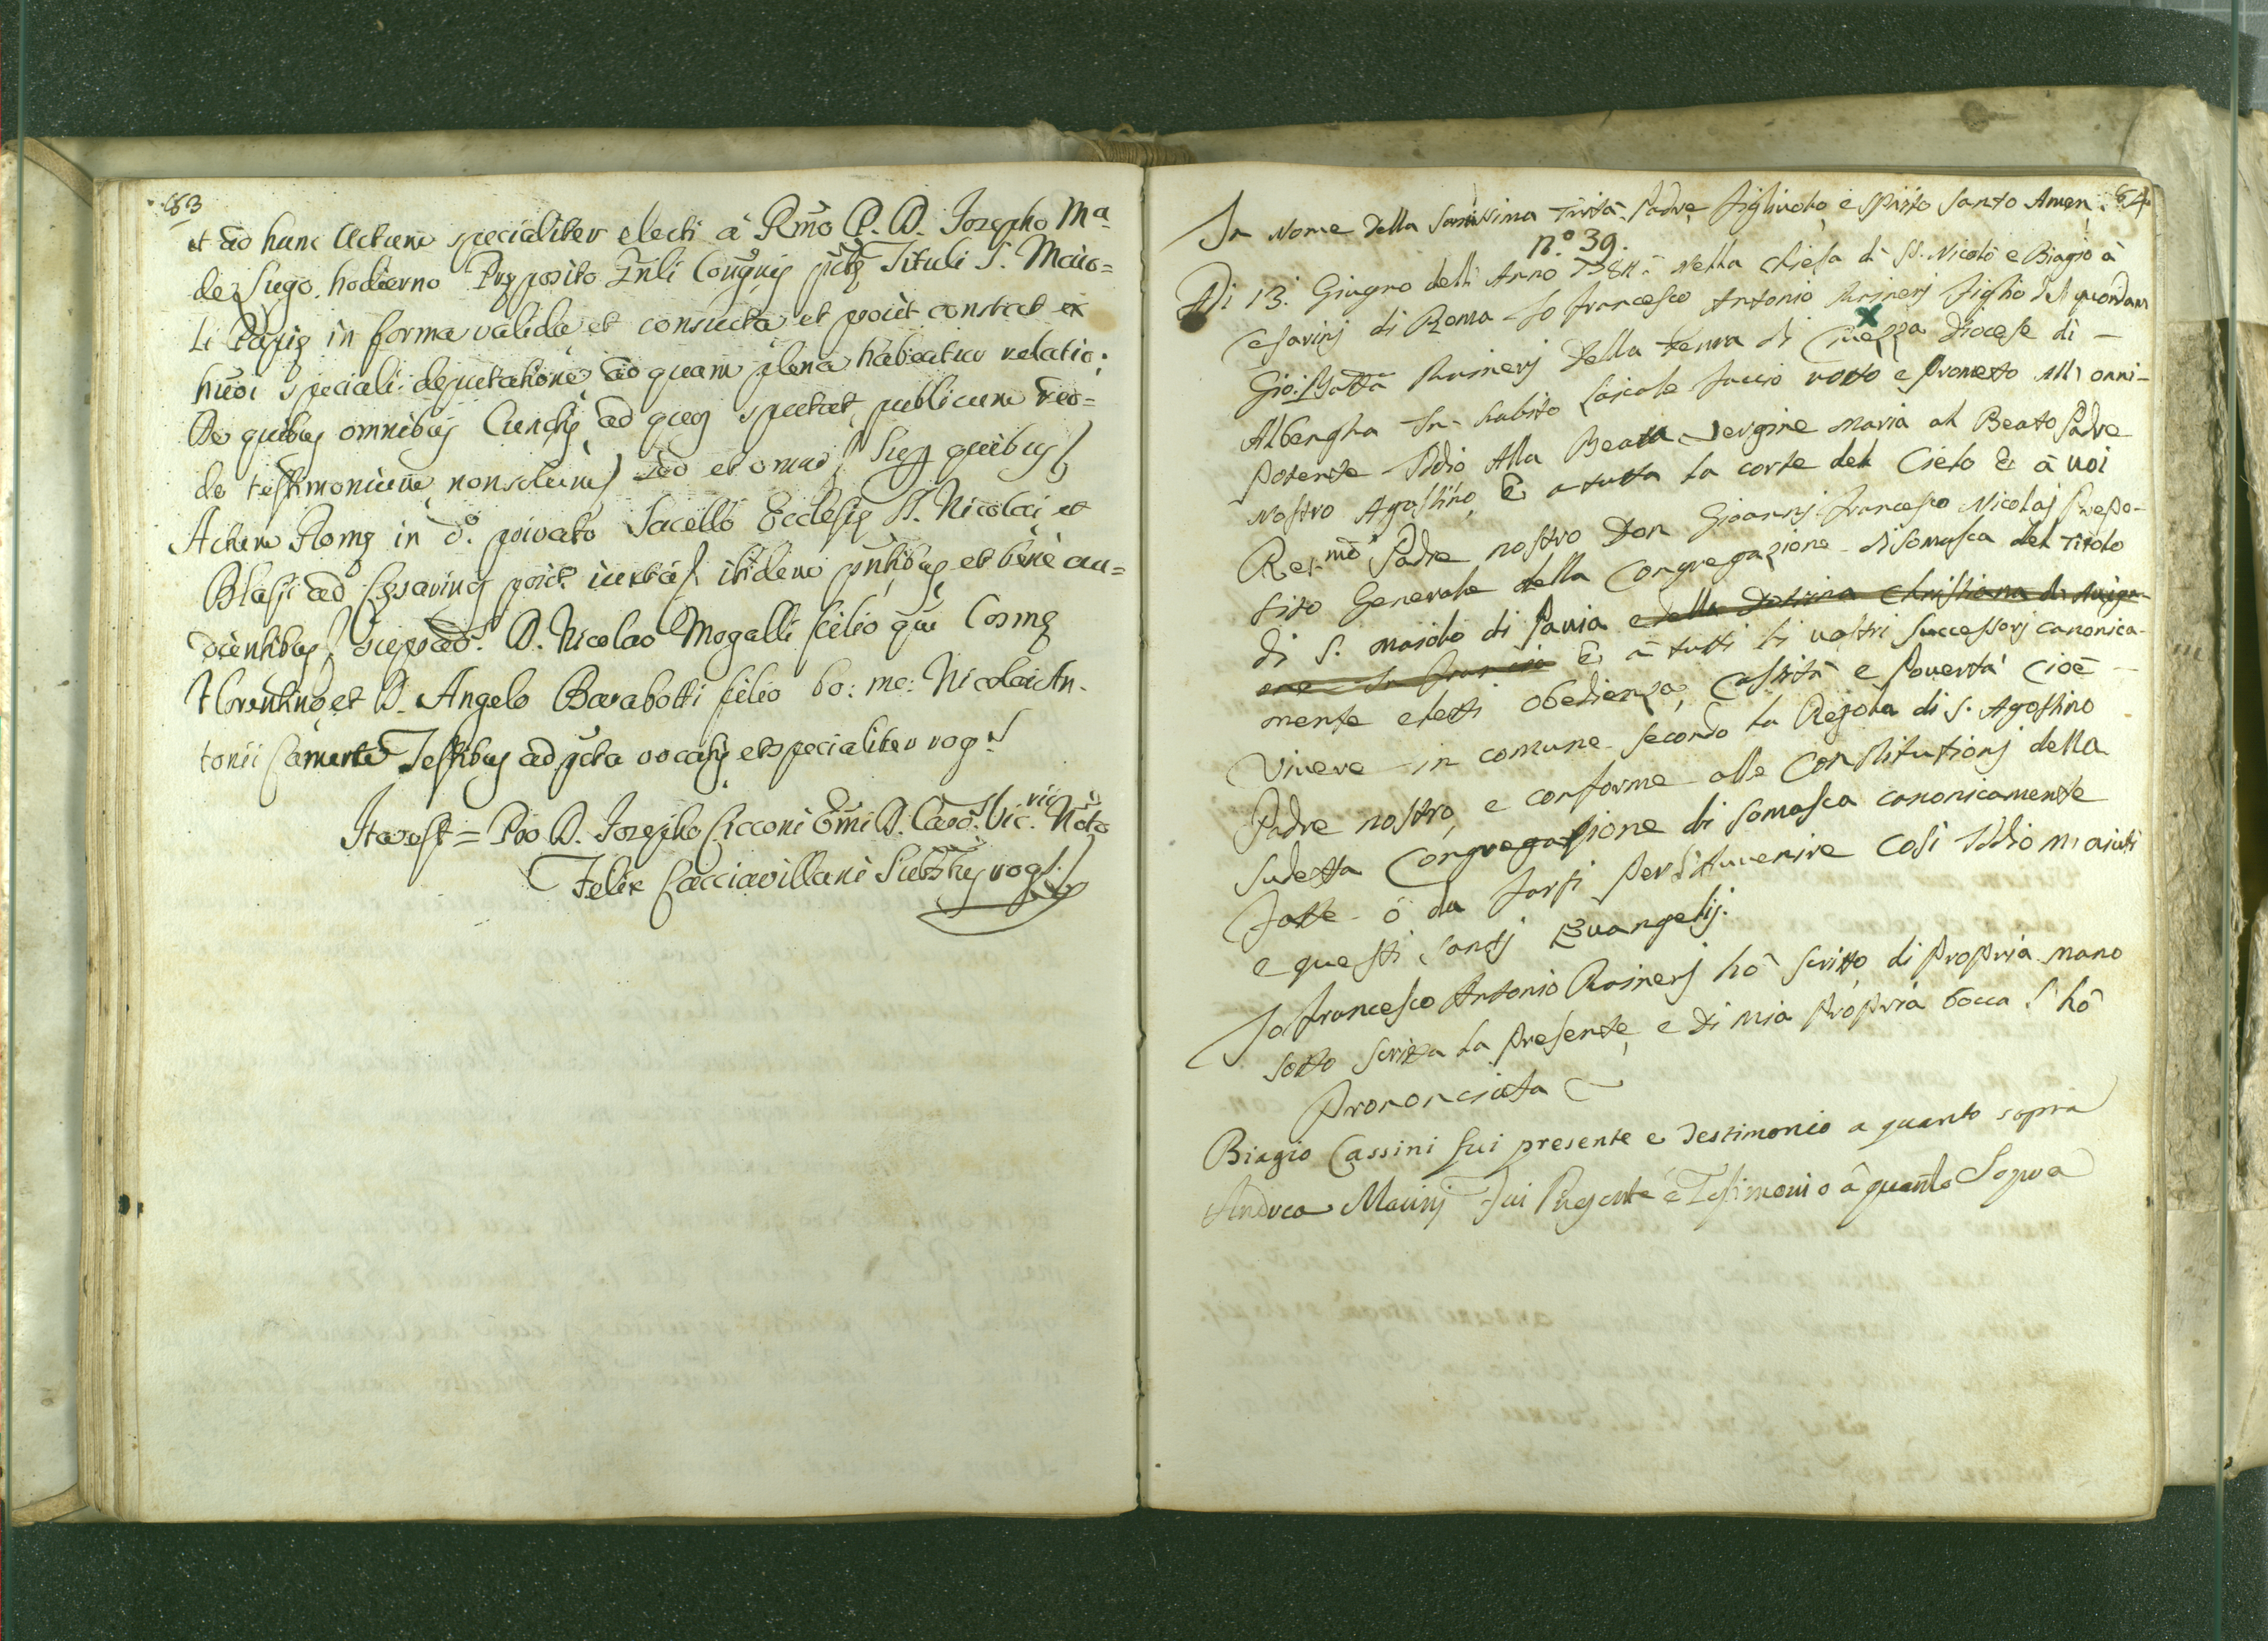 83
et ad hunc Actum specialiter electi à Rmo P. D. Josepho Ma
de Lugo hodierno Preposito Gnli Congnis pte Tituli S. Maio=
li Papie in forma valida, et consueta et prout constat ex
huoi speciali deputatione ad quam plena habeatur relatio;
De quibus omnibus Cunctis, ad quos spectat, publicum red=
do testimonium nonsolum) sed et omni) Sup quibus)
Actum Rome in do. privato Sacello Ecclesie SS. Nicolai, et
Blasii ad Cesarinos juxta) ibidem pntibus, et bene au=
dientibus) D. Nicolao Mogalli filio qm Cosme
Florentino, et D. Angelo Barabotti filio bo: me: Nicolai An-
tonii Camerte Testibus ad pcta vocatis, et specialiter rog.
Ita est = Pro D. Josepho Cicconi Emi D. Card. Vic. Noto
Felix Cacciavillani Substus rog.
84
In Nome della Santissima Trità. Padre Figliuolo, e Spirito Santo Amen.
n.º 39.
Adi 13. Giugno dell Anno nella chiesa di SS. Nicolò e Biagio à
Cesarinj di Roma Io Francesco Antonio Rainerj Figlio del quondam
x
Gio: Batta Rainerj della Terra di Diocese di
Albengha In habito Laicale faccio votto e Prometto All onni-
potente Iddio Alla Beatta vergine maria al Beato Padre
nostro Agostino, È a tutta la corte del Cielo È à voi
Rev.mo Padre nostro Don Gioannj Francesco Nicolaj Prepo-
sito Generale della Congregazione di Somasca del Titolo
di S. maiolo di Pavia e della Dotrina Christiana di Avigno-
ne In Francia È à tutti li vostri Successorj canonica-
mente eletti obedienza, Castità e Povertà cioè
Vivere in comune secondo la Regola di S. Agostino
Padre nostro, e conforme alle Constitutionj della
sudetta Congregatione di somasca canonicamente
fatte ò da farsi per l'avvenire Cosi Iddio m'aiuti
e questi Santj Evangelij.
Io Francesco Antonio Rainerj hò scritto di propria mano
sotto scritta la presente, e di mia propria bocca l'hò
Prononciata
Biagio Cassini fui presente e Testimonio a quanto sopra
Andrea Marinj Fui Presente e Testimonio à quanto Sopra